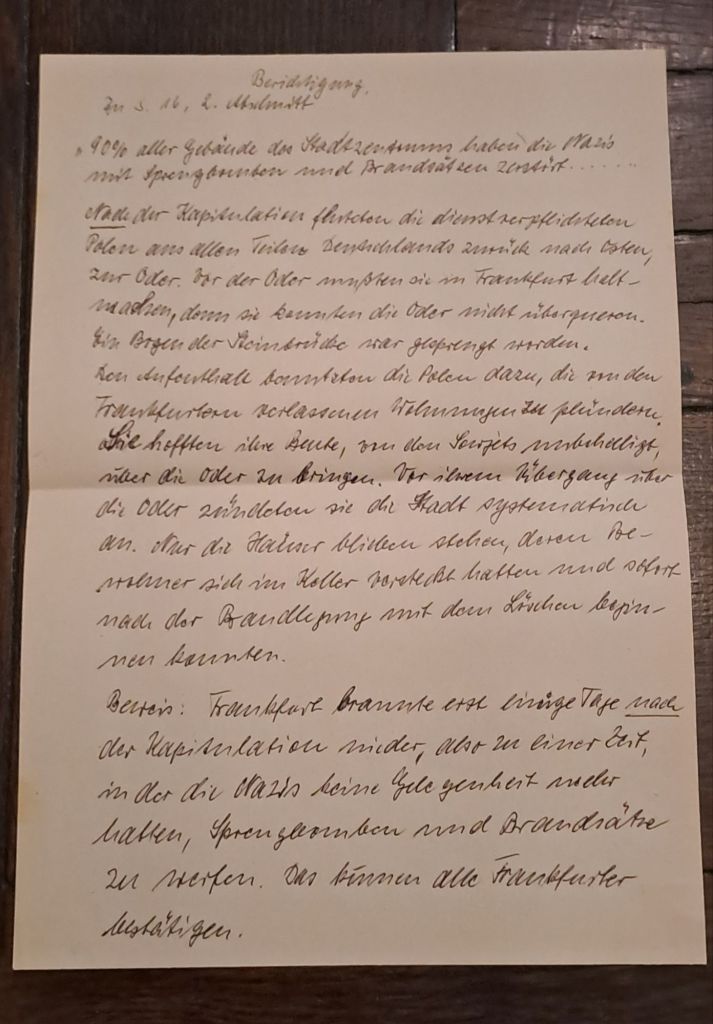 Berichtigung.
Zu S. 16, 2. Abschnitt
"90% aller Gebäude des Stadtzentrums haben die Nazis
mit Sprengbomben und Brandsätzen zerstört.......
Nach der Kapitulation fluteten die dienstverpflichteten
Polen aus allen Teilen Deutschlands zurück nach Osten,
zur Oder. Vor der Oder mußten sie in Frankfurt halt-
machen, denn sie konnten die Oder nicht überqueren.
Ein Bogen der Steinbrücke war gesprengt worden.
Den Aufenthalt benutzten die Polen dazu, die von den
Frankfurtern verlassenen Wohnungen zu plündern.
Sie hofften ihre Beute, von den Sowjets unbehelligt,
über die Oder zu bringen. Vor ihrem Übergang über
die Oder zündeten sie die Stadt systematisch
an. Nur die Häuser blieben stehen, deren Be-
wohner sich im Keller versteckt hatten und sofort
nach der Brandlegung mit dem Löschen begin-
nen konnten.
Beweis: Frankfurt brannte erst einige Tage nach
der Kapitulation nieder, also zu einer Zeit,
in der die Nazis keine Gelegenheit mehr
hatten, Sprengbomben und Brandsätze
zu werfen. Das können alle Frankfurter
bestätigen.